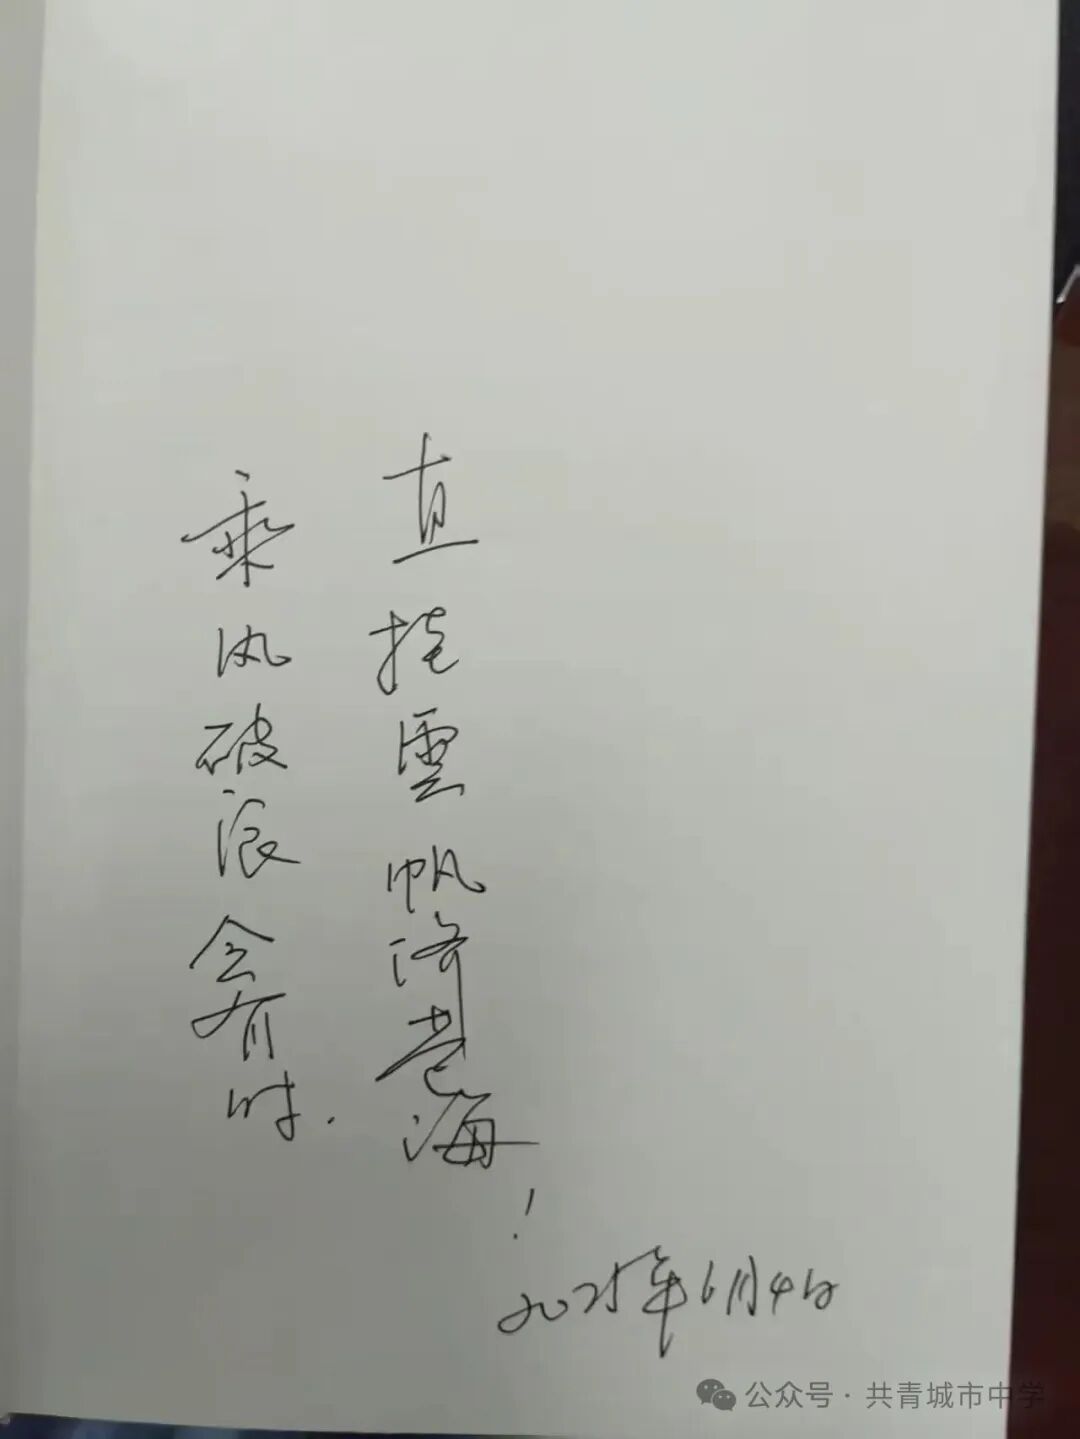 乘风破浪会有时.
直挂雲帆济苍海!
2025年6月4日
公众号·共青城市中学